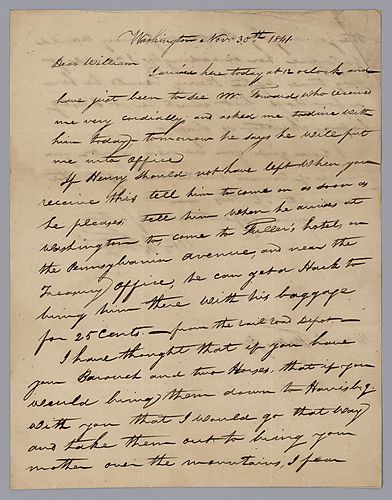 Washington Nov. 30th 1841.
Dear William
I arrived here today at 12 oclock and
have just been to see Mr. Forward, who received
me very cordially and asked me to dine with
him today, tomorrow he says he will put
me into office
If Henry should not have left when you
receive this tell him to come on as soon as
he pleases, tell him when he arrives at
Washington to, come to Fuller's, hotel, on
the Pennsylvania avenue, and near the
Treasury Office, he can get a Hack to
bring him there with his baggage
for 25 Cents — from the rail road Depot —
I have thought that if you have
your Barouch and two Horses, that if you
would bring them down to Harrisbg
with you that I would go that way
and take them out to bring your
mother over the mountains, I fear